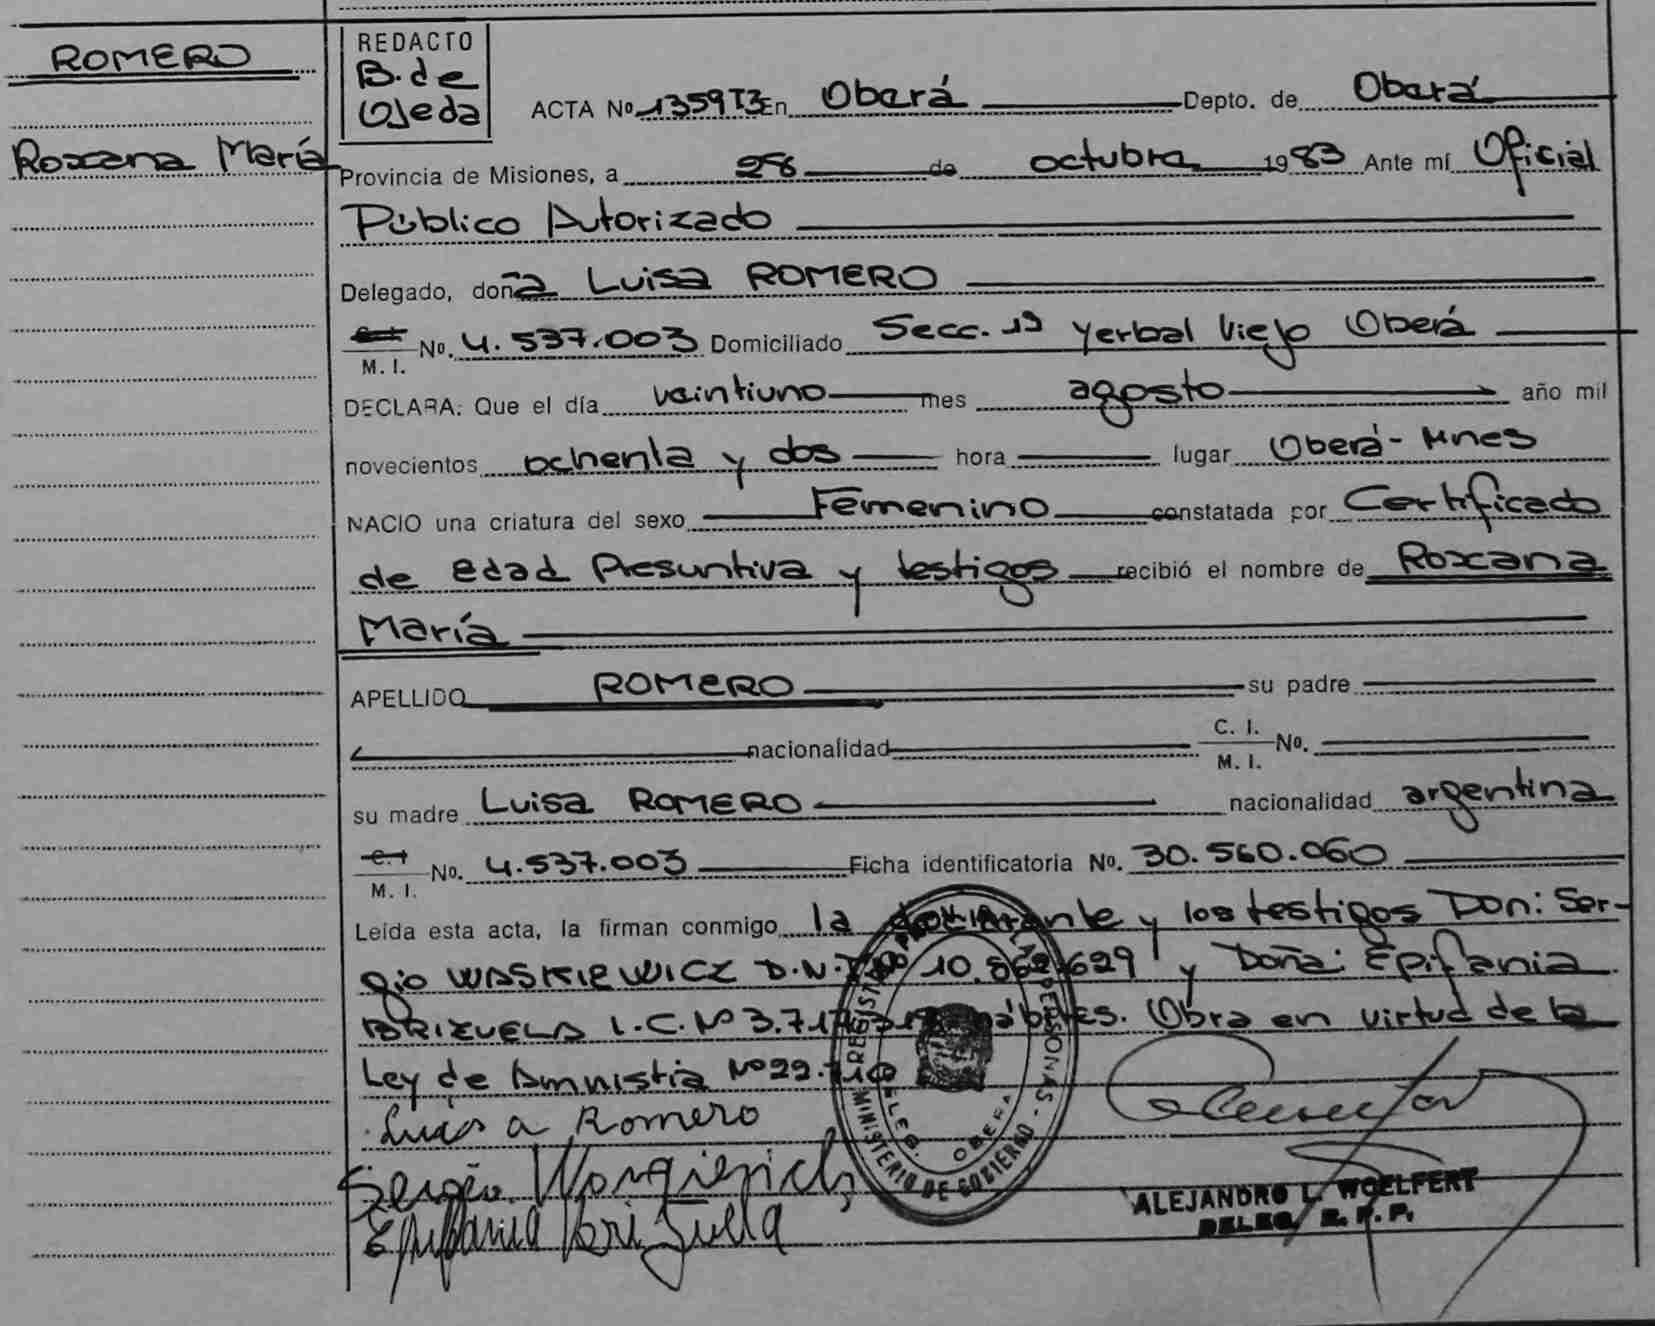 ROMERO
Roxana María
REDACTO
B. de
Ojeda
ACTA Nº 1359T3 En Oberá Depto. de Oberá
Provincia de Misiones, a 28 de octubre 1983 Ante mí Oficial
Público Autorizado
Delegado, doña Luisa ROMERO
C.I. M. I. No. 4.537.003 Domiciliado Secc. 1ª Yerbal Viejo Oberá
DECLARA: Que el día veintiuno mes agosto año mil
novecientos ochenta y dos hora lugar Oberá-Mnes
NACIO una criatura del sexo Femenino constatada por Certificado
de edad Presuntiva y testigos recibió el nombre de Roxana
María
APELLIDO ROMERO su padre
nacionalidad C. I. M. I. No.
su madre Luisa ROMERO nacionalidad argentina
C.I. M. I. No. 4.537.003 Ficha identificatoria No. 30.560.060
Leida esta acta, la firman conmigo la declarante y los testigos Don: Ser-
gio WASKIEWICZ D.N.I. Nº 10.862.629 y Doña: Epifania
BRIZUELA L.C. Nº 3.717. hábiles. Obra en virtud de la
Ley de Amnistía Nº 22.
Luisa Romero
Sergio
Epifania Brizuela
REGISTRO PROV. LAS PERSONAS - MINISTERIO DE GOBIERNO
DELEG. OBERA
ALEJANDRO L. WOELFERT
DELEG. R. P. P.